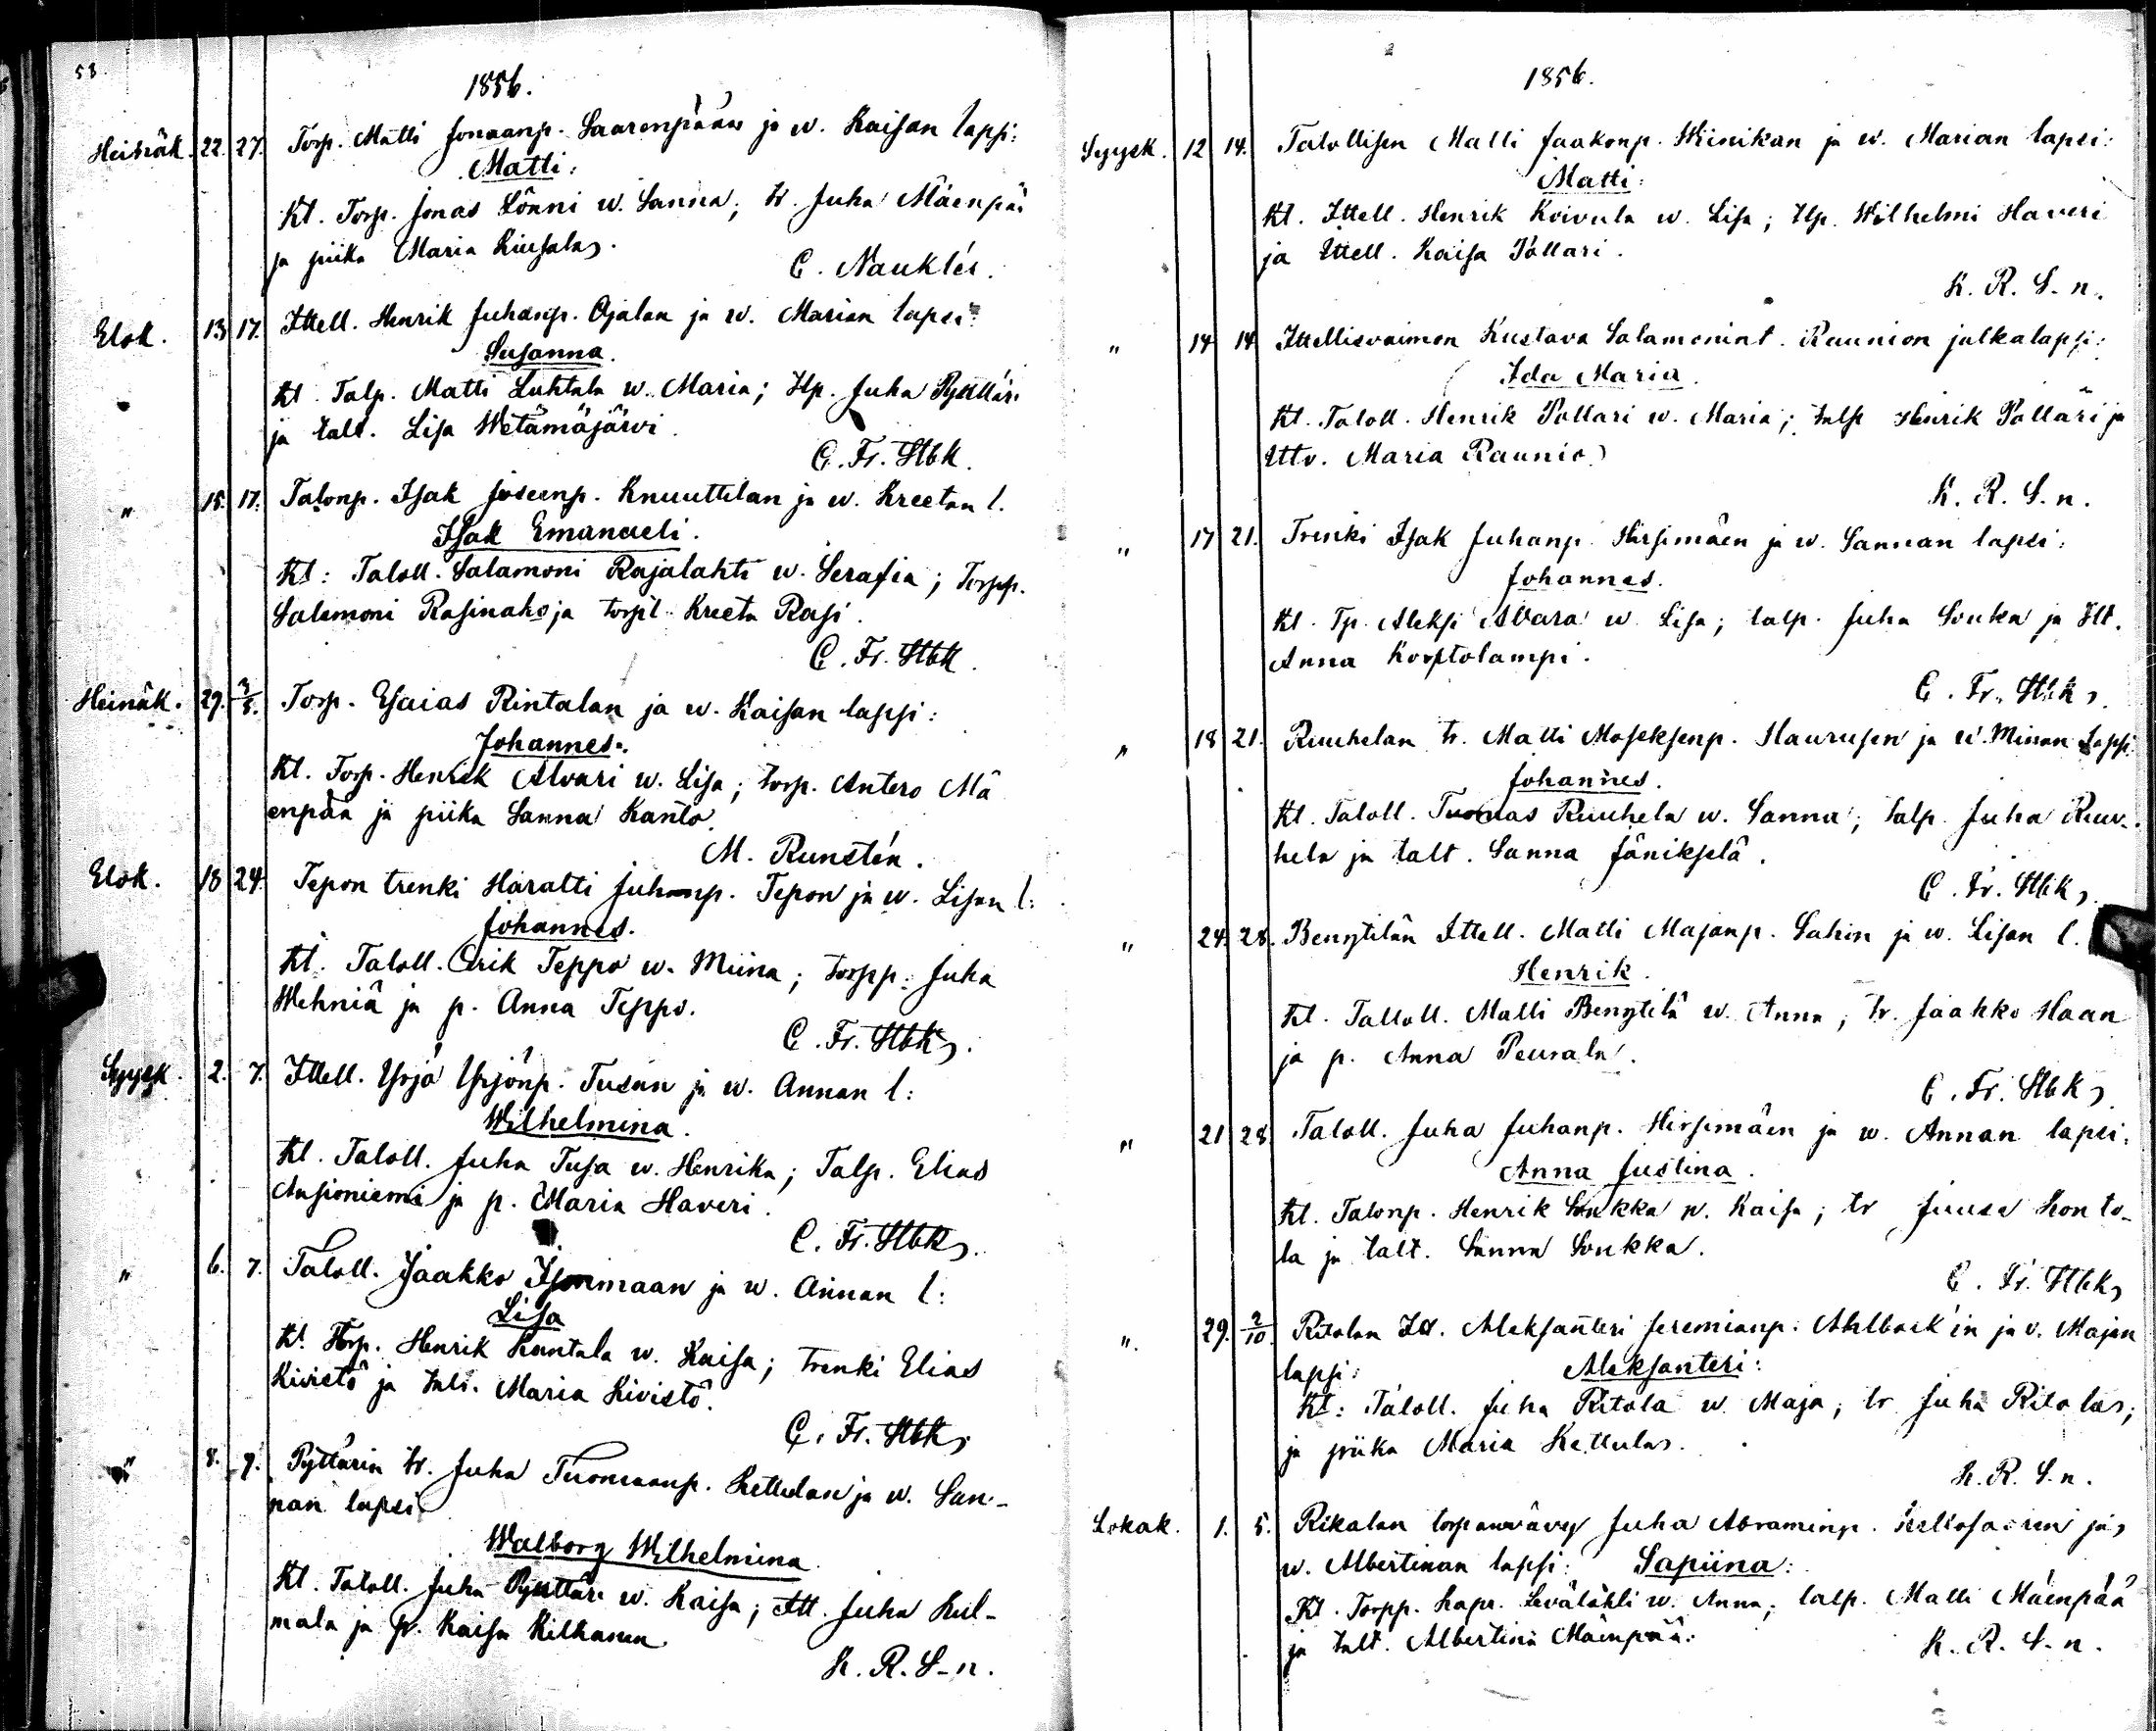 58.
1856.
Heinäk. 22. 27. Torp. Matti Jonaanp. Saarenpään ja w. Kaisan lapsi:
Matti:
Kt. Torp. Jonas Lönni w. Sanna; tr. Juha Mäenpää
ja piika Maria Kiusala.
C. Nauklér.
Elok. 13 17. Ittell. Henrik Juhanp. Ojalan ja w. Marian lapsi:
Susanna.
Kt. Talp. Matti Luhtala w. Maria; Itp. Juha Pyttäri
ja talt. Lisa Wetämäjärvi.
C. Fr. Stbk.
" 15. 17. Talonp. Isak Joseenp. Knuuttilan ja w. Kreetan l.
Isak Emanueli.
Kt: Taloll. Salamoni Rajalahti w. Serafia; Torpp.
Salamoni Rasinaho ja torpt. Kreeta Rasi.
C. Fr. Stbk.
Heinäk. 29. 3/8. Torp. Esaias Rintalan ja w. Kaisan lapsi:
Johannes:
Kt. Torp. Henrik Alvari w. Lisa; torp. Antero Mä
enpää ja piika Sanna Kanto.
M. Runstén.
Elok. 18 24. Tepon trenki Haratti Juhanp. Tepon ja w. Lisan l:
Johannes.
Kt. Taloll. Erik Teppo w. Miina; torpp: Juha
Wehniä ja p. Anna Teppo.
C. Fr. Stbk.
Syysk. 2. 7. Ittell. Yrjö Yrjönp. Tusan ja w. Annan l:
Wilhelmina.
Kt. Taloll. Juha Tusa w. Henrika; Talp. Elias
Ansioniemi ja p. Maria Haveri.
C. Fr. Stbk.
" 6. 7. Taloll. Jaakko Isonmaan ja w. Annan l:
Lisa
Kt. Torp. Henrik Rantala w. Kaisa; trenki Elias
Kivistö ja talt. Maria Kivistö.
C. Fr. Stbk.
" 8. 9. Pyttärin tr. Juha Tuomaanp. Kettulan ja w. San-
nan lapsi
Walborg Wilhelmina
Kt. Taloll. Juha Pyttäri w. Kaisa; Itt. Juha Kul-
mala ja p. Kaisa Kitkanen
K. R. S-n.
1856.
Syysk. 12 14. Talollisen Matti Jaakonp. Wiinikan ja w. Marian lapsi:
Matti:
Kt. Ittell. Henrik Koivula w. Lisa; Itp. Wilhelmi Haveri
ja Ittell. Kaisa Pollari.
K. R. S-n.
" 14 14 Ittellisvaimon Kustava Salamonint. Raunion jalkalapsi:
Ida Maria.
Kt. Taloll. Henrik Pollari w. Maria; talp Henrik Pollari ja
Ittv. Maria Raunio
K. R. S-n.
" 17 21. Trenki Isak Juhanp. Hirsimäen ja w. Sannan lapsi:
Johannes.
Kt. Tp. Aleksi Alvara w. Lisa; talp. Juha Soukka ja Itt.
Anna Korptolampi.
C. Fr. Stbk.
" 18 21. Ruuhelan tr. Matti Moseksenp. Haurusen ja w. Minan lapsi:
Johannes.
Kt. Taloll. Tuomas Ruuhela w. Sanna; talp. Juha Ruu-
hela ja talt. Sanna Jänikselä.
C. Fr. Stbk.
" 24. 28. Bengtilän Ittell. Matti Majanp. Sahin ja w. Lisan l.
Henrik.
Kt. Talloll. Matti Bengtilä w. Anna; tr. Jaakko Haan
ja p. Anna Peurala.
C. Fr. Stbk.
" 21 28 Taloll. Juha Juhanp. Hirsimäen ja w. Annan lapsi:
Anna Justina.
Kt. Talonp. Henrik Soukka w. Kaisa; tr Juusa Konto-
la ja talt. Sanna Soukka.
C. Fr. Stbk.
" 29. 2/10. Ritolan Itt. Aleksanteri Jeremianp. Ahlbackin ja v. Majan
lapsi: Aleksanteri:
Kt: Taloll. Juha Ritola w. Maja; tr Juha Ritola;
ja piika Maria Kettula.
K. R. S-n.
Lokak. 1. 5. Rikalan torpanvävy Juha Abraminp. Keltosaaren ja
w. Albertinan lapsi: Sapiina:
Kt. Torpp. Kapr. Levälahti w. Anna; talp. Matti Mäenpää
ja talt. Albertina Mäenpää:
K. R. S-n.